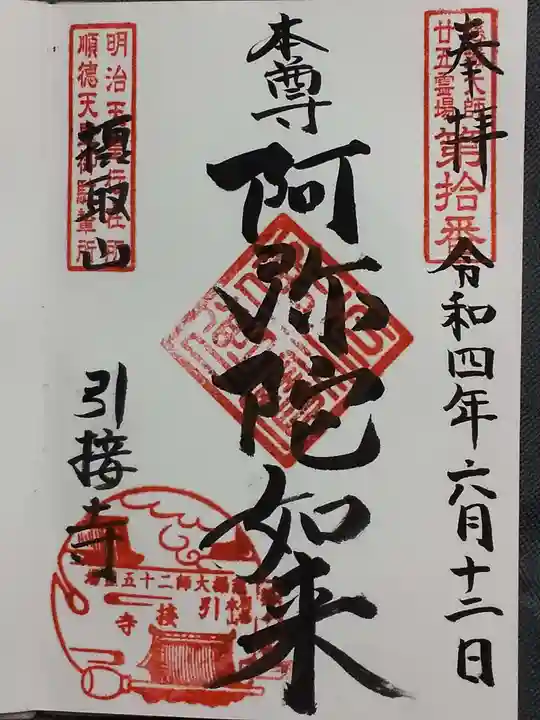 奉拝
大師
廿五霊場
第拾番
令和四年六月十二日
本尊
阿弥陀如来
明治天
行在所
順德天皇御駐輦所
摂取山
引接寺
大師二十五
引接寺